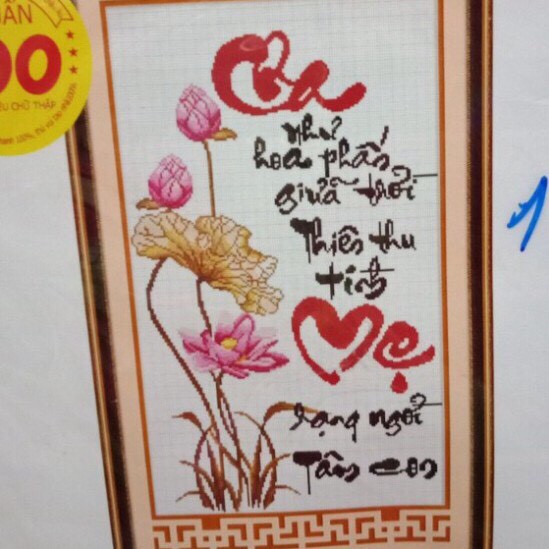 UẨN
00
ÊU CHỮ THẬP
Cha
như
hoa phấn
giữa trời
Thiên thu
tình
Mẹ
rạng ngời
Tâm con
1